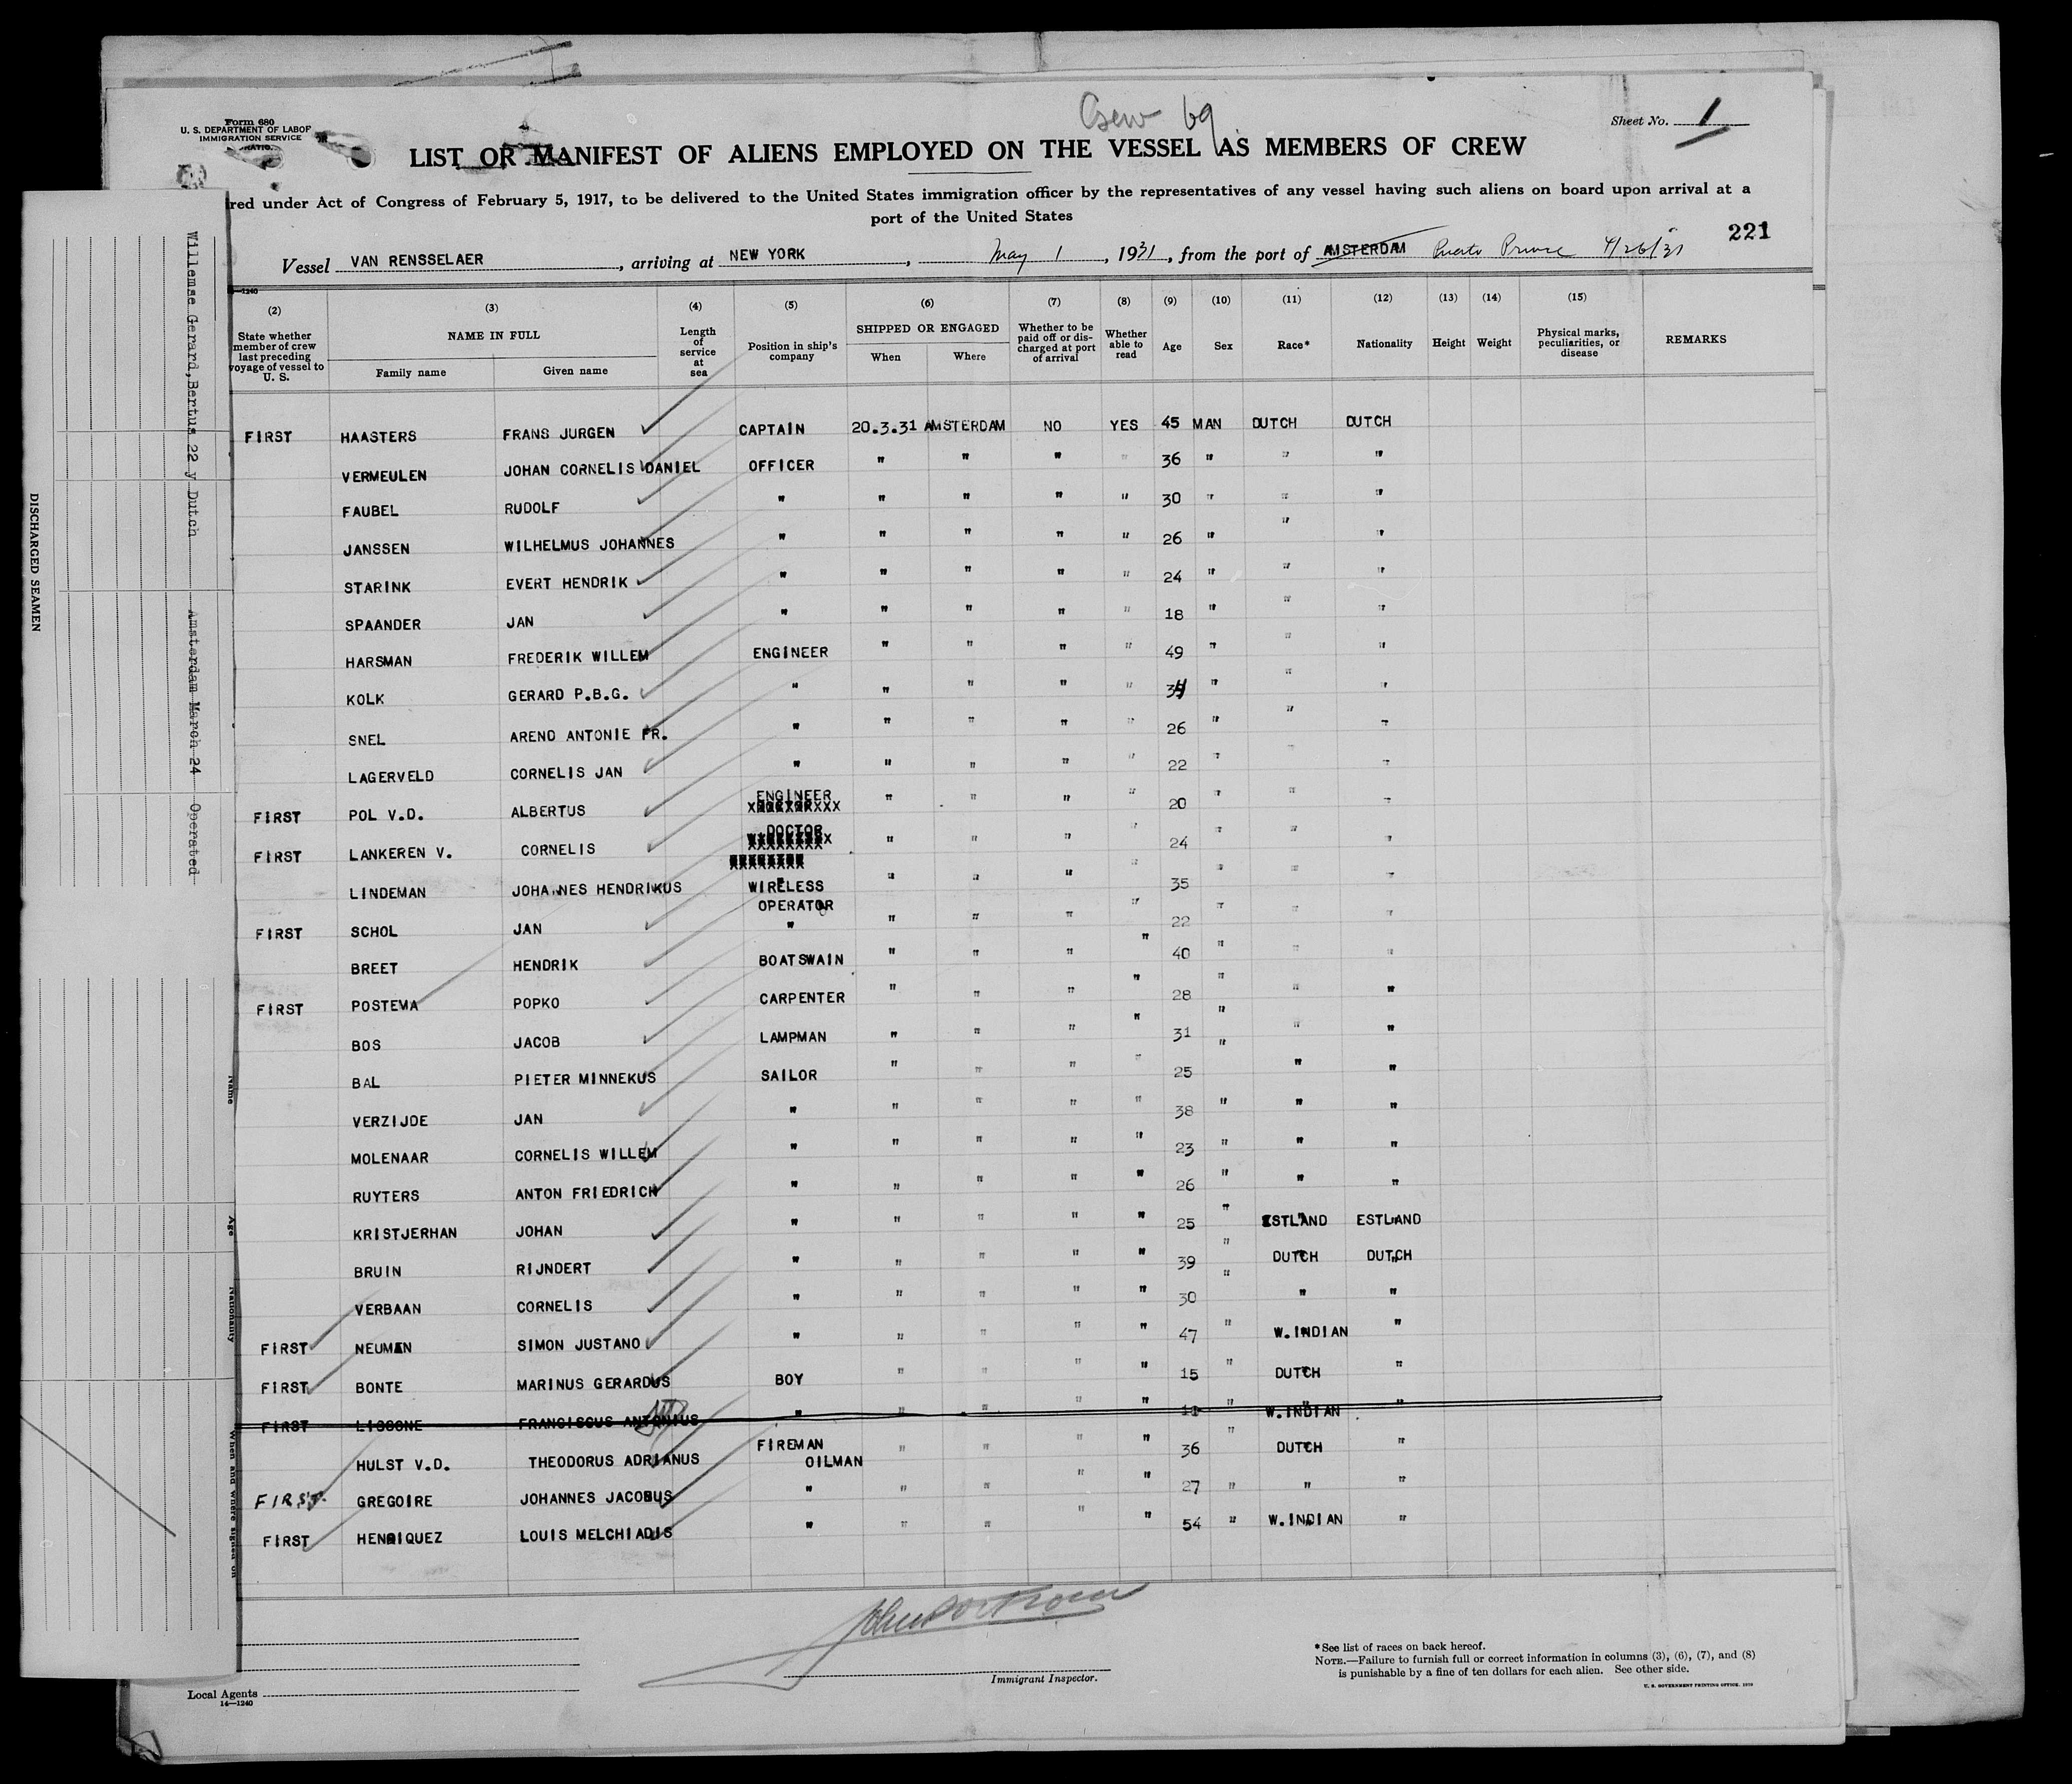 Crew 69
Form 680
U. S. DEPARTMENT OF LABOR
IMMIGRATION SERVICE
Sheet No. 1
LIST OR MANIFEST OF ALIENS EMPLOYED ON THE VESSEL AS MEMBERS OF CREW
red under Act of Congress of February 5, 1917, to be delivered to the United States immigration officer by the representatives of any vessel having such aliens on board upon arrival at a
port of the United States
221
Vessel VAN RENSSELAER, arriving at NEW YORK, May 1, 1931, from the port of AMSTERDAM Puerto Prince 4/26/31
(2) (3) (4) (5) (6) (7) (8) (9) (10) (11) (12) (13) (14) (15)
State whether member of crew last preceding voyage of vessel to U. S. NAME IN FULL Family name Given name Length of service at sea Position in ship's company SHIPPED OR ENGAGED When Where Whether to be paid off or discharged at port of arrival Whether able to read Age Sex Race* Nationality Height Weight Physical marks, peculiarities, or disease REMARKS
FIRST HAASTERS FRANS JURGEN CAPTAIN 20.3.31 AMSTERDAM NO YES 45 MAN DUTCH DUTCH
VERMEULEN JOHAN CORNELIS DANIEL OFFICER " " " " 36 " " "
FAUBEL RUDOLF " " " " " 30 " " "
JANSSEN WILHELMUS JOHANNES " " " " " 26 " " "
STARINK EVERT HENDRIK " " " " " 24 " " "
SPAANDER JAN " " " " " 18 " " "
HARSMAN FREDERIK WILLEM ENGINEER " " " " 49 " " "
KOLK GERARD P.B.G. " " " " " 34 " " "
SNEL AREND ANTONIE FR. " " " " " 26 " " "
LAGERVELD CORNELIS JAN " " " " " 22 " " "
FIRST POL V.D. ALBERTUS ENGINEER " " " " 20 " " "
FIRST LANKEREN V. CORNELIS DOCTOR " " " " 24 " " "
LINDEMAN JOHANNES HENDRIKUS WIRELESS OPERATOR " " " " 35 " " "
FIRST SCHOL JAN " " " " " 22 " " "
BREET HENDRIK BOATSWAIN " " " " 40 " " "
FIRST POSTEMA POPKO CARPENTER " " " " 28 " " "
BOS JACOB LAMPMAN " " " " 31 " " "
BAL PIETER MINNEKUS SAILOR " " " " 25 " "
VERZIJDE JAN " " " " " 38 " " "
MOLENAAR CORNELIS WILLEM " " " " " 23 " " "
RUYTERS ANTON FRIEDRICH " " " " " 26 " " "
KRISTJERHAN JOHAN " " " " " 25 " ESTLAND ESTLAND
BRUIN RIJNDERT " " " " " 39 " DUTCH DUTCH
VERBAAN CORNELIS " " " " " 30 " " "
FIRST NEUMAN SIMON JUSTANO " " " " " 47 " W.INDIAN "
FIRST BONTE MARINUS GERARDUS BOY " " " " 15 " DUTCH "
FIRST LISSONE FRANCISCUS ANTONIUS " " " " 11 " W.INDIAN "
HULST V.D. THEODORUS ADRIANUS FIREMAN OILMAN " " " " 36 " DUTCH "
FIRST GREGOIRE JOHANNES JACOBUS " " " " " 27 " " "
FIRST HENRIQUEZ LOUIS MELCHIADIS " " " " " 54 " W.INDIAN "
Immigrant Inspector.
*See list of races on back hereof.
NOTE.—Failure to furnish full or correct information in columns (3), (6), (7), and (8)
is punishable by a fine of ten dollars for each alien. See other side.
U. S. GOVERNMENT PRINTING OFFICE: 1929
Local Agents
14—1240
DISCHARGED SEAMEN
Willemse Gerard, Bertus 22 y Dutch Amsterdam March 24 Operated
Name
Age
Nationality
When and where signed on